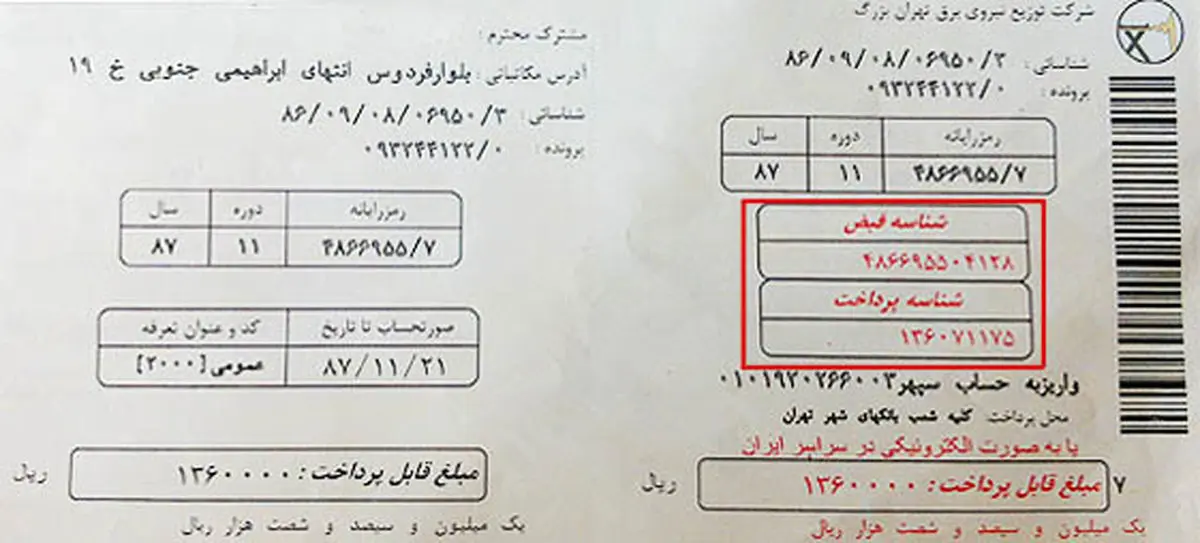 شرکت توزیع نیروی برق تهران بزرگ
شناسائی : ۸۶/۰۹/۰۸/۰۶۹۵۰/۳
پرونده : ۰۹۳۲۴۴۱۲۲/۰
رمزرایانه دوره سال
۴۸۶۶۹۵۵/۷ ۱۱ ۸۷
شناسه قبض
۴۸۶۶۹۵۵۰۴۱۲۸
شناسه پرداخت
۱۳۶۰۷۱۱۷۵
واریزبه حساب سپهر۰۱۰۱۹۲۰۲۶۶۰۰۳
محل پرداخت: کلیه شعب بانکهای شهر تهران
یا به صورت الکترونیکی در سراسر ایران
۷ مبلغ قابل پرداخت : ۱۳۶۰۰۰۰ ریال
یک میلیون و سیصد و شصت هزار ریال
مشترک محترم :
آدرس مکاتباتی : بلوارفردوس انتهای ابراهیمی جنوبی خ ۱۹
شناسائی : ۸۶/۰۹/۰۸/۰۶۹۵۰/۳
پرونده : ۰۹۳۲۴۴۱۲۲/۰
رمزرایانه دوره سال
۴۸۶۶۹۵۵/۷ ۱۱ ۸۷
صورتحساب تا تاریخ کد و عنوان تعرفه
۸۷/۱۱/۲۱ عمومی [۲۰۰۰]
مبلغ قابل پرداخت : ۱۳۶۰۰۰۰ ریال
یک میلیون و سیصد و شصت هزار ریال